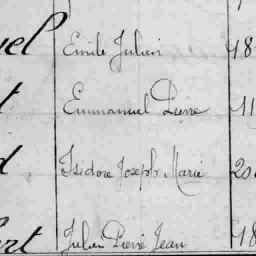 uel Emile Julien 18
t Emmanuel Pierre 11
d Isidore Joseph Marie 20
ert Julien Pierre Jean 18